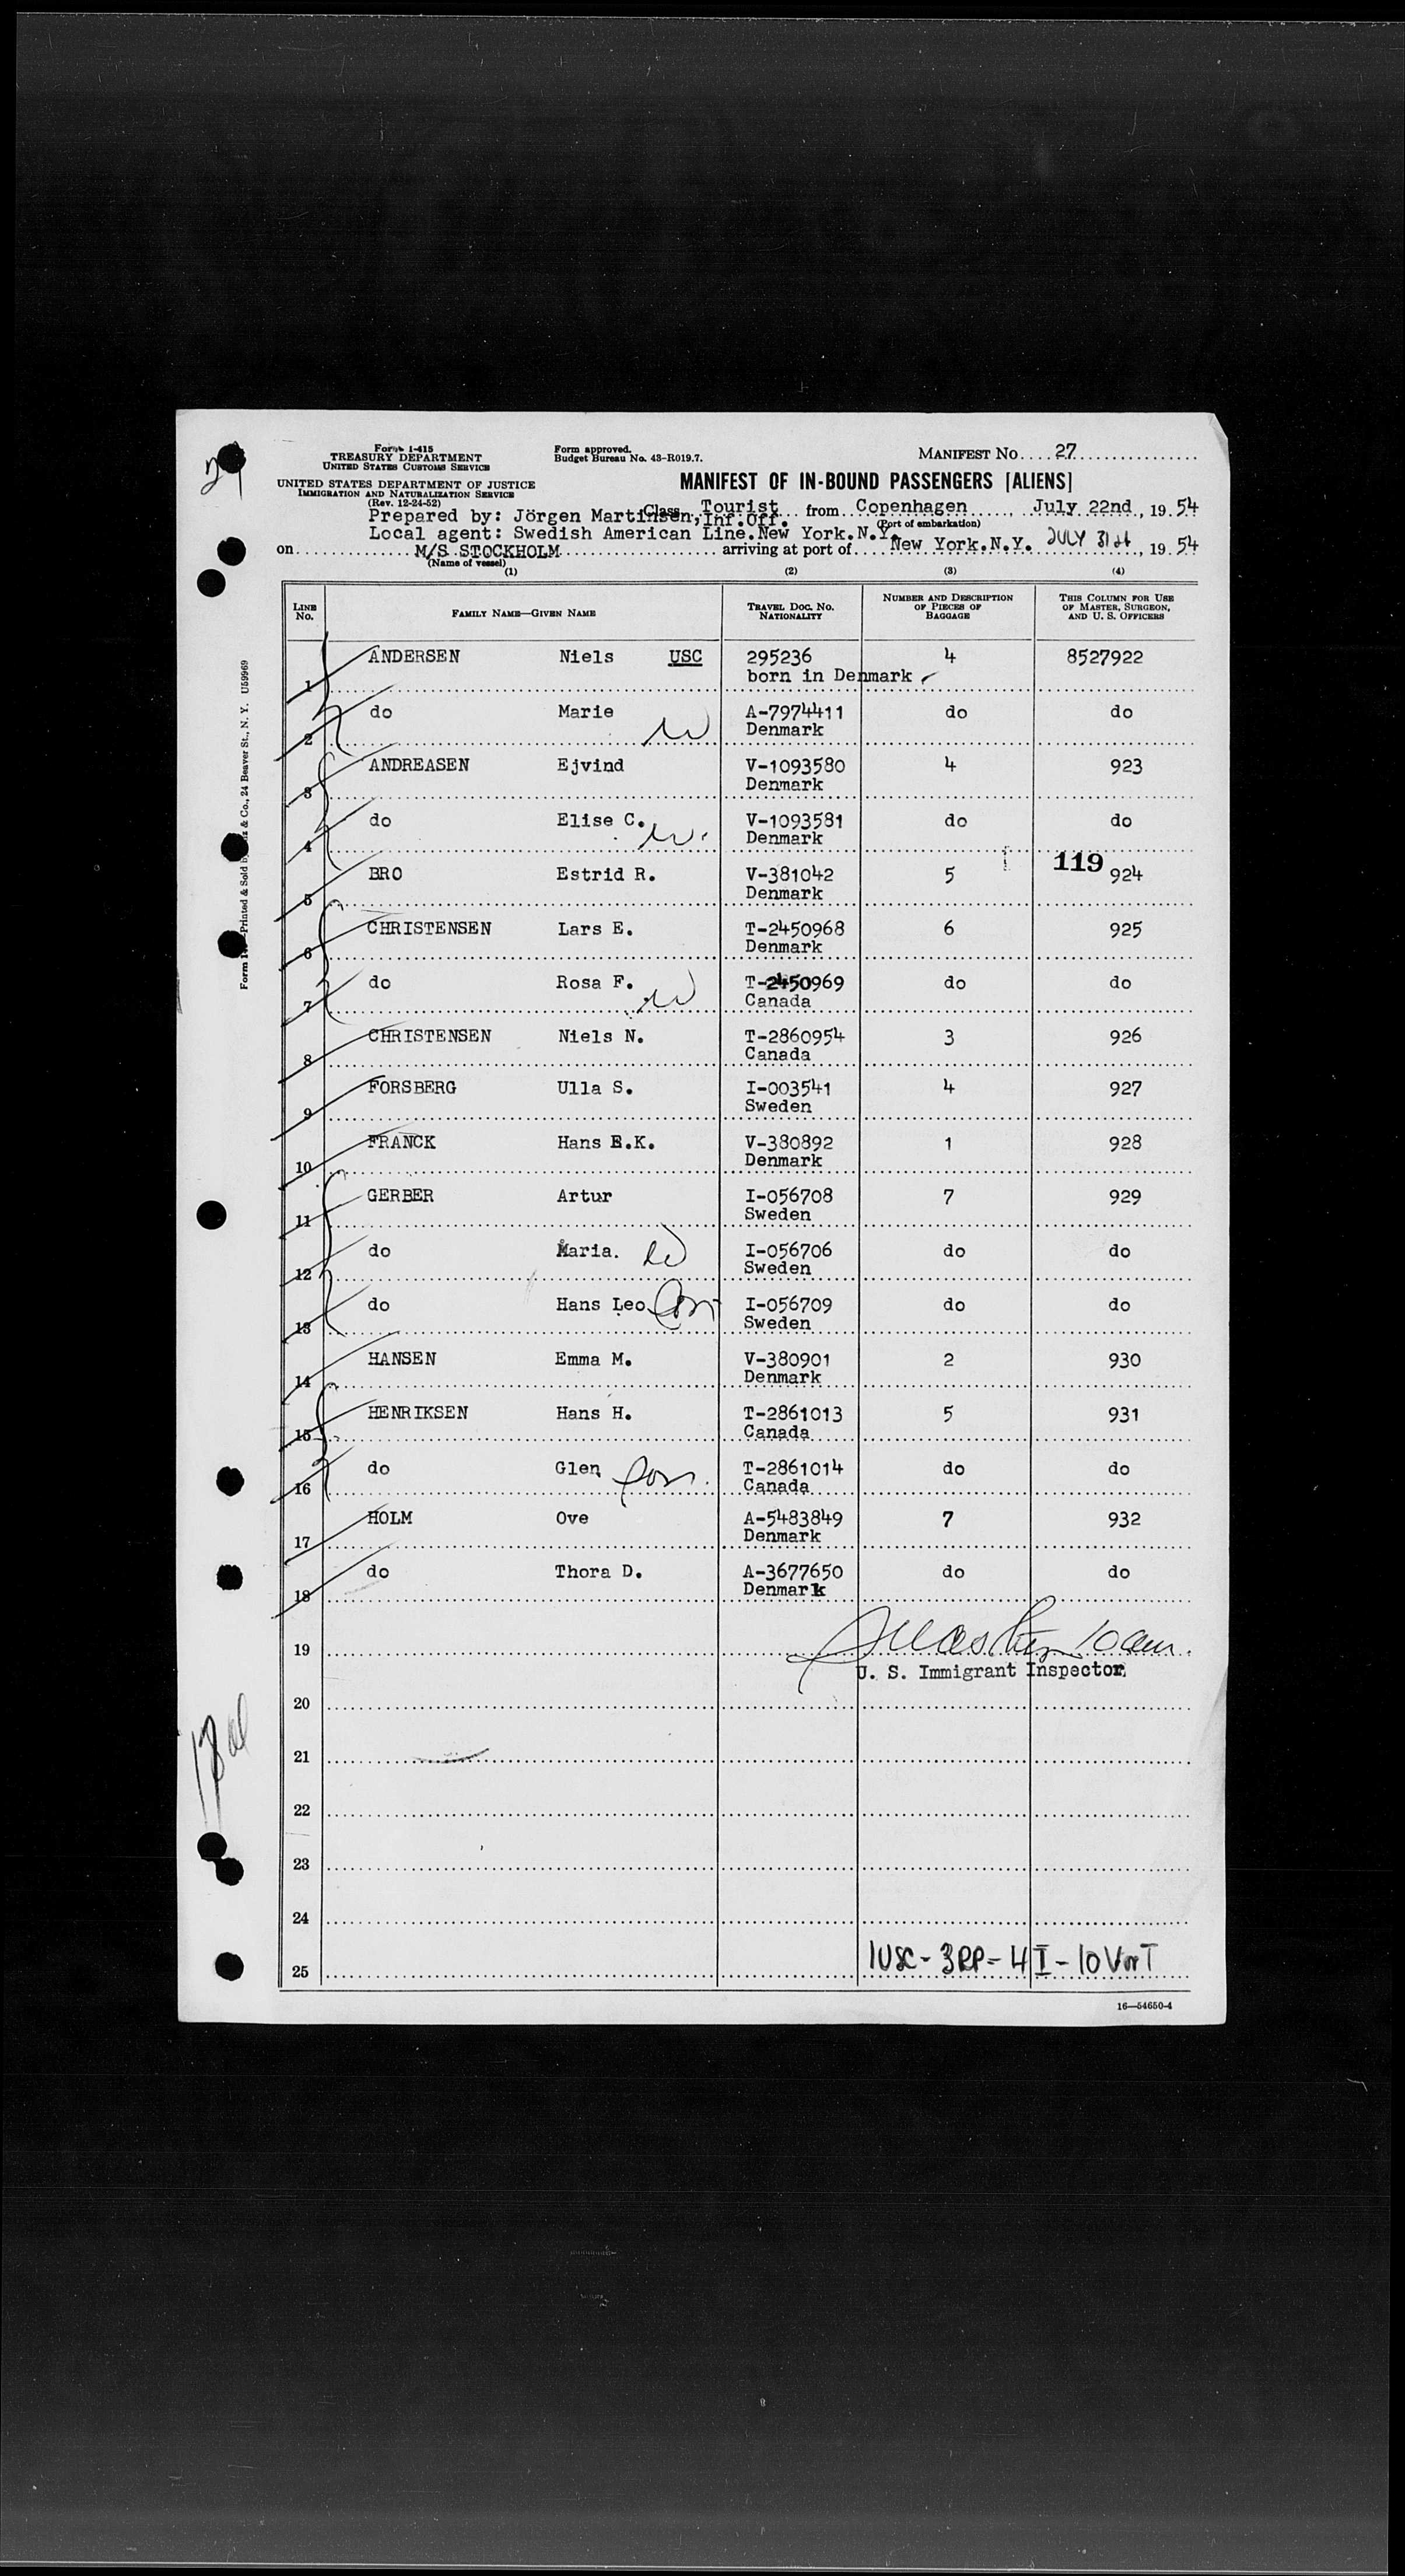 Form I-415
TREASURY DEPARTMENT
UNITED STATES CUSTOMS SERVICE
Form approved.
Budget Bureau No. 43-R019.7.
MANIFEST NO. 27
UNITED STATES DEPARTMENT OF JUSTICE
IMMIGRATION AND NATURALIZATION SERVICE
(Rev. 12-24-52)
MANIFEST OF IN-BOUND PASSENGERS [ALIENS]
Class Tourist from Copenhagen, July 22nd, 19 54
(Port of embarkation)
Prepared by: Jörgen Martinsen, Inf.Off.
Local agent: Swedish American Line.New York.N.Y.
on M/S STOCKHOLM arriving at port of New York.N.Y. JULY 31st, 19 54
(Name of vessel)
(1) (2) (3) (4)
LINE NO. FAMILY NAME—GIVEN NAME TRAVEL DOC. NO. NATIONALITY NUMBER AND DESCRIPTION OF PIECES OF BAGGAGE THIS COLUMN FOR USE OF MASTER, SURGEON, AND U. S. OFFICERS
1 ANDERSEN Niels USC 295236 4 8527922
born in Denmark
2 do Marie A-7974411 do do
Denmark
3 ANDREASEN Ejvind V-1093580 4 923
Denmark
4 do Elise C. V-1093581 do do
Denmark
119
5 BRO Estrid R. V-381042 5 924
Denmark
6 CHRISTENSEN Lars E. T-2450968 6 925
Denmark
7 do Rosa F. T-2450969 do do
Canada
8 CHRISTENSEN Niels N. T-2860954 3 926
Canada
9 FORSBERG Ulla S. I-003541 4 927
Sweden
10 FRANCK Hans E.K. V-380892 1 928
Denmark
11 GERBER Artur I-056708 7 929
Sweden
12 do Maria. I-056706 do do
Sweden
13 do Hans Leo son I-056709 do do
Sweden
14 HANSEN Emma M. V-380901 2 930
Denmark
15 HENRIKSEN Hans H. T-2861013 5 931
Canada
16 do Glen son T-2861014 do do
Canada
17 HOLM Ove A-5483849 7 932
Denmark
18 do Thora D. A-3677650 do do
Denmark
19
U. S. Immigrant Inspector
20
21
22
23
24
25 1USC-3RP-4I-10VorT
16—54650-4